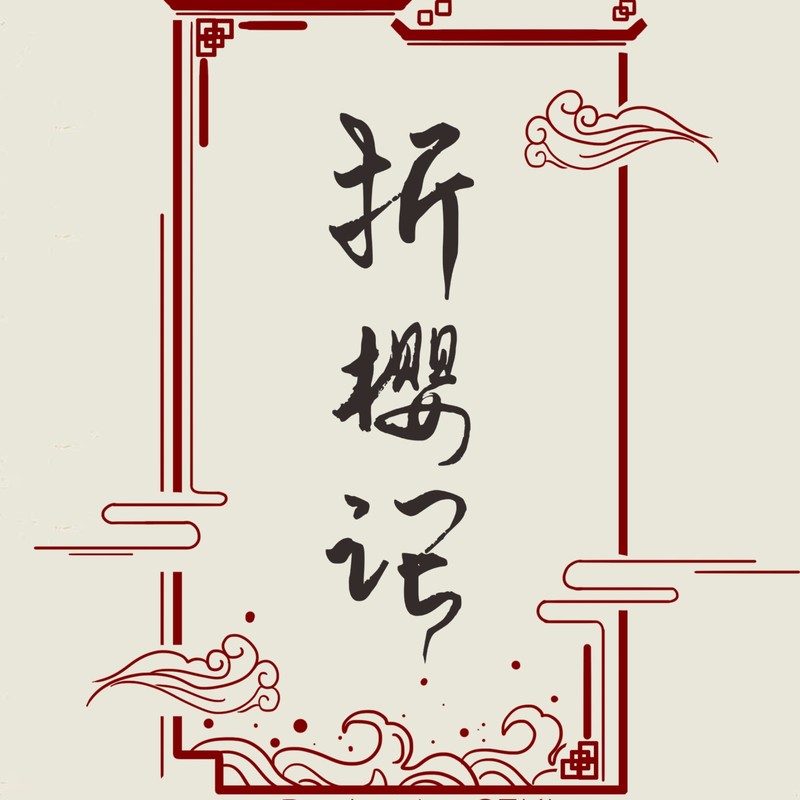 折樱记